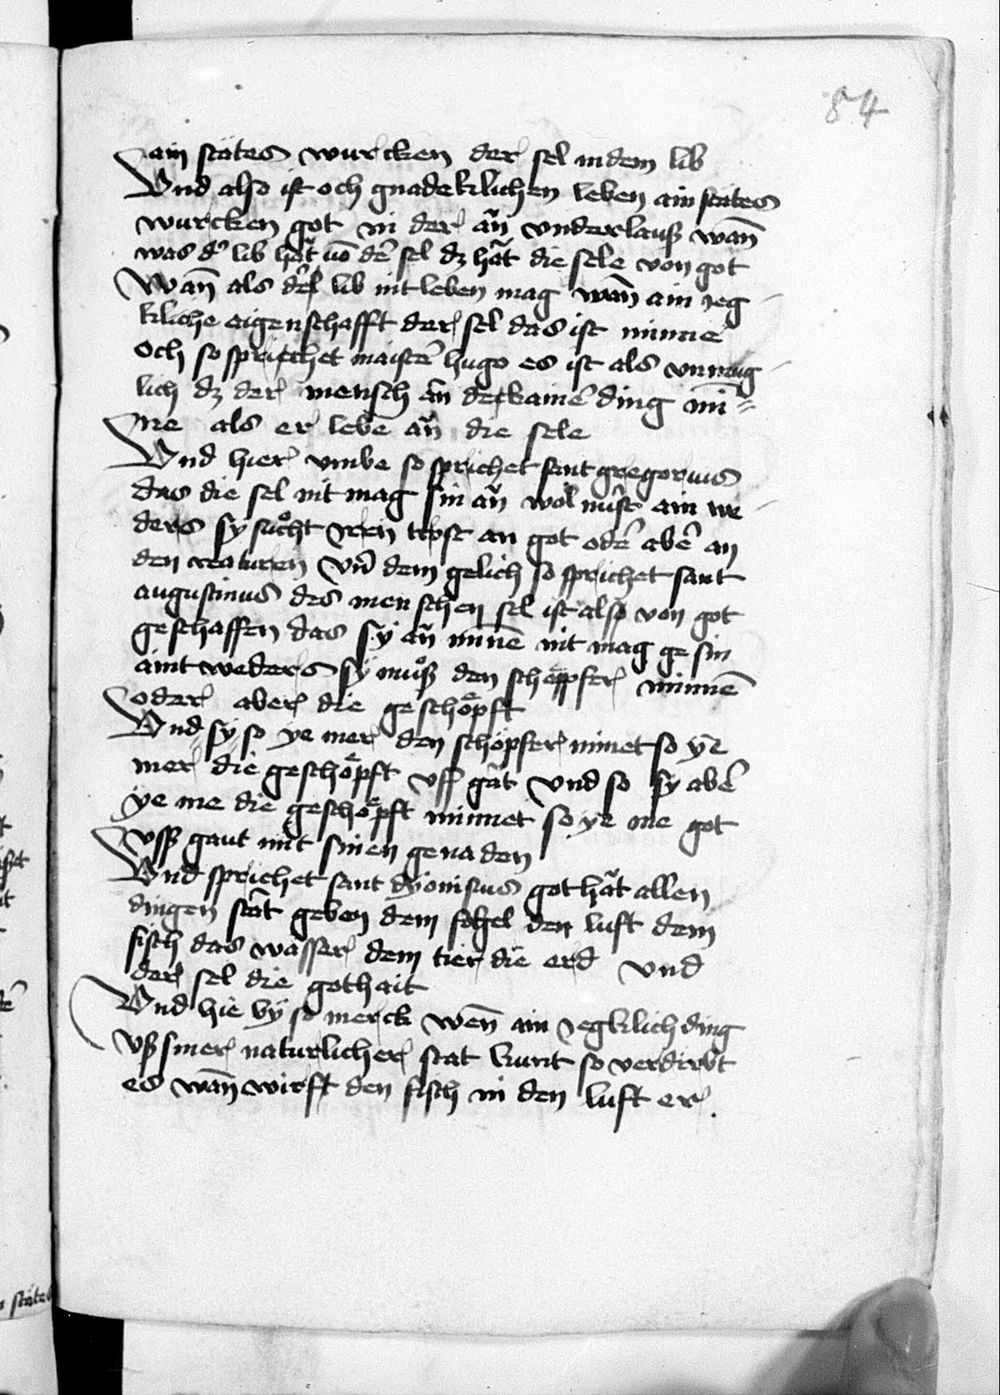 84
ain stätes wurcken der sel in dem lib
Vnd also ist och gnadeklichen leben ain stätes
wurcken got in der añ vnderlauß wañ
was d' lib hãt võ de͂ sel dz hãt die sele von got
Wañ als der lib nit leben mag wañ ain yeg
kliche aigenschafft der sel das ist minne
Och so sprichet maiste͂ hugo es ist als vnmug
lich dz der mensch an dekaine͂ ding mi͂=
ne als er lebe añ die sele
Vnd hier vmbe so sprichet sant gregorius
das die sel nit mag sin añ wol nu͂st ain we
ders sy suͦcht iren trost an got ode͂ abe͂ an
den creaturen Vñ dem gelich so sprichet sant
augustinus des menschen sel ist also von got
geschaffen das sy añ mine͂ nit mag gesin
aintweders sy muͦß den schöpfer minne͂
oder aber die geschöpft
Vnd sy so ye mer den schöpfer minet so ye
mer die geschöpft vß gãt Vnd so sy abe͂
ye me die geschöpft minnet so ye me got
vß gaut mit sinen genaden
Vnd sprichet sant dyonisius got hãt allen
dingen stãt geben dem fogel den luft dem
fisch das wasser dem tier die erd Vnd
der sel die gothait
Vnd hie by so merck wen͂ ain yegklich ding
vß siner naturlicher stat kunt so verdirbt
es wañ wirft den fisch in den luft er